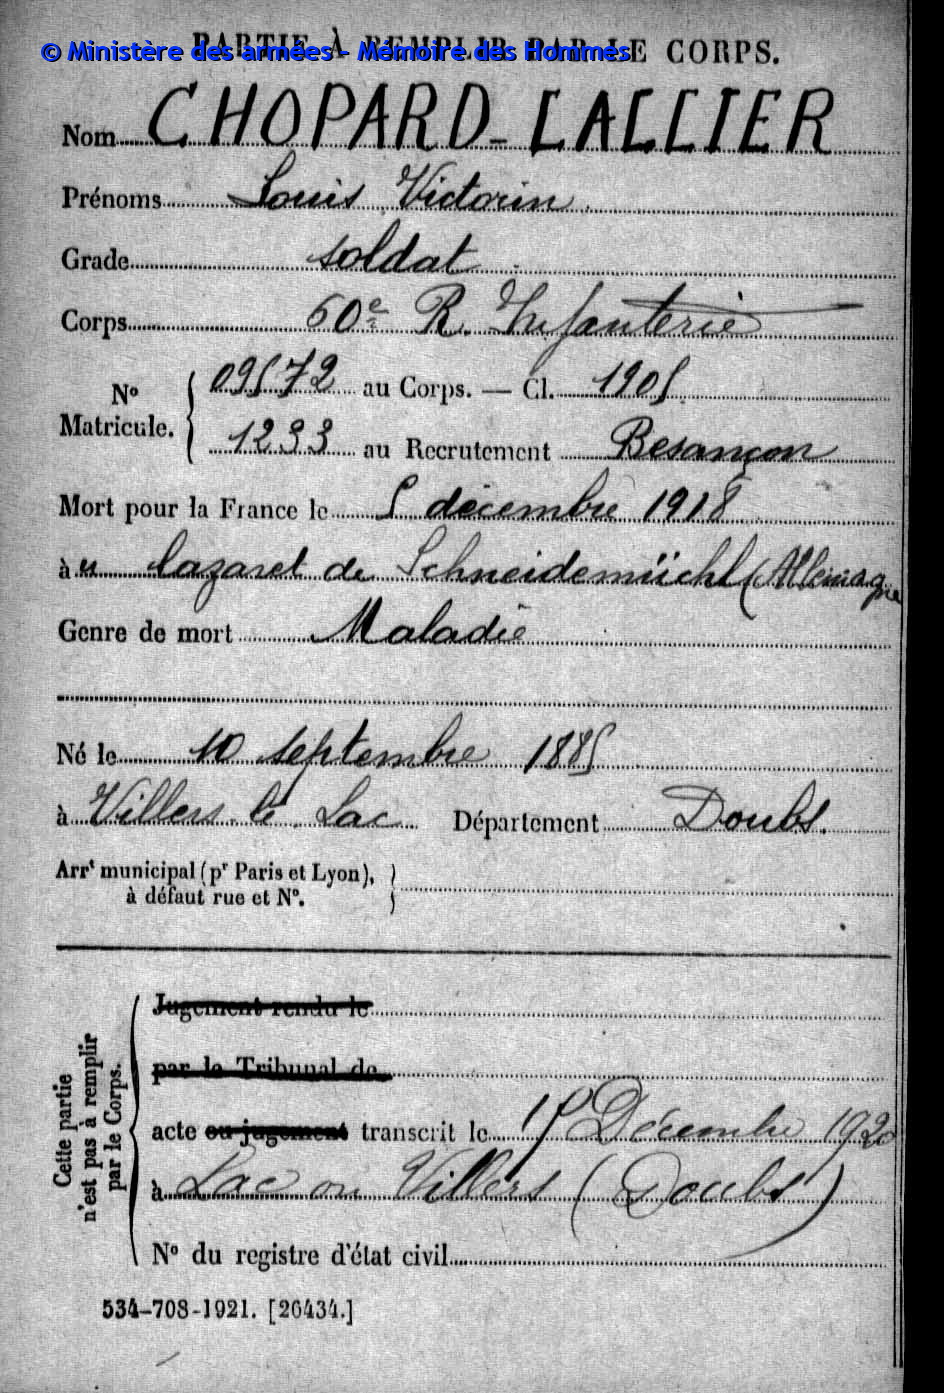 PARTIE À REMPLIR PAR LE CORPS.
© Ministère des armées - Mémoire des Hommes
Nom CHOPARD-LALLIER
Prénoms Louis Victorin
Grade soldat
Corps 60e R. Infanterie
No Matricule. 09572 au Corps. — Cl. 1905
1233 au Recrutement Besançon
Mort pour la France le 5 décembre 1918
à u lazaret de Schneidemüchl (Allemagne
Genre de mort Maladie
Né le 10 septembre 1885
à Villers-le-Lac Département Doubs.
Arrt municipal (pr Paris et Lyon),
à défaut rue et No.
Cette partie n'est pas à remplir par le Corps.
Jugement rendu le
par le Tribunal de
acte ou jugement transcrit le 15 Décembre 1920
à Lac ou Villers (Doubs)
No du registre d'état civil
534-708-1921. [26434.]